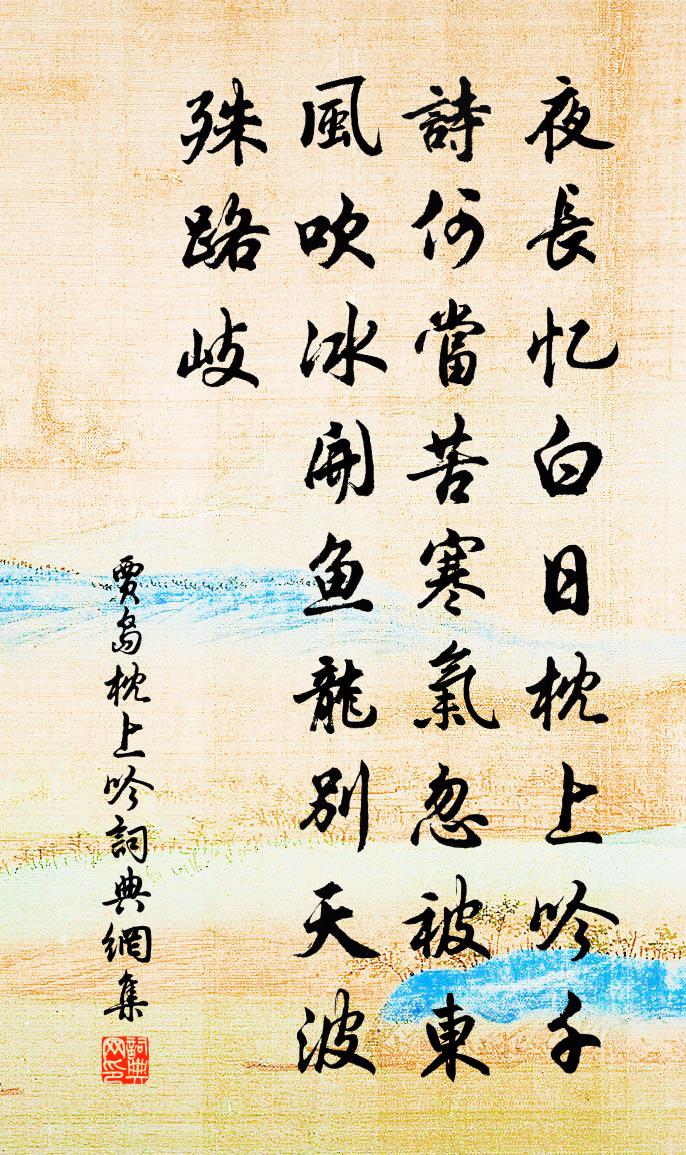 夜長忆白日枕上吟千
詩何當苦寒氣忽被東
風吹冰開魚龍別天波
殊路岐
賈島枕上吟詞典網集
詞典网印